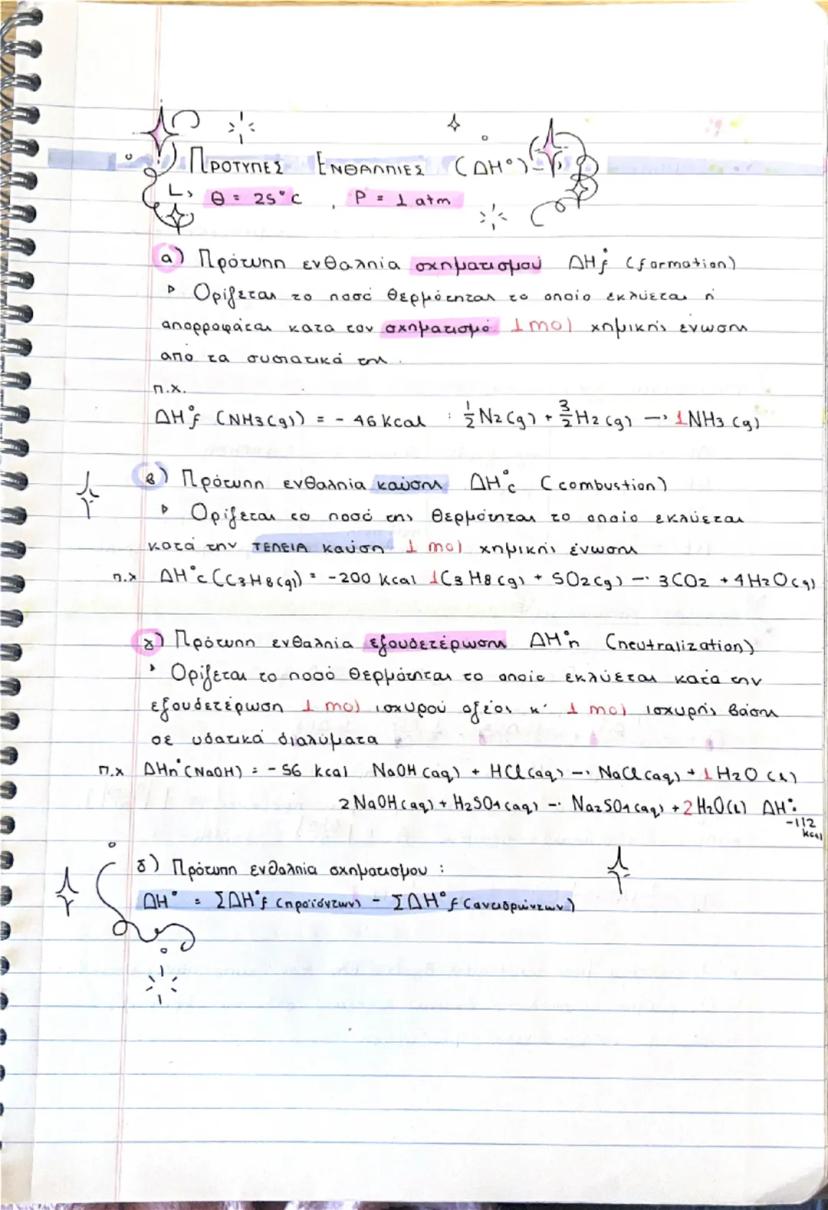 ΠΡΟΤΥΠΕΣ ΕΝΘΑΛΠΙΕΣ (ΔΗ°)
θ = 25°C , P = 1 atm
α) Πρότυπη ενθαλπία σχηματισμού ΔΗ°f (formation)
Ορίζεται το ποσό θερμότητας το οποίο εκλύεται ή
απορροφάται κατα τον σχηματισμό 1 mol χημικής ένωσης
από τα συστατικά της.
π.χ.
ΔΗ°f (NH3(g)) = - 46 kcal : 1/2 N2(g) + 3/2 H2(g) → 1NH3(g)
β) Πρότυπη ενθαλπία καύσης ΔΗ°c (combustion)
Ορίζεται το ποσό της θερμότητας το οποίο εκλύεται
κατά την ΤΕΛΕΙΑ καύση 1 mol χημικής ένωσης
π.χ ΔΗ°c (C3H8(g)) = -200 kcal 1C3H8(g) + 5O2(g) → 3CO2 + 4H2O(g)
γ) Πρότυπη ενθαλπία εξουδετέρωσης ΔΗ°n (neutralization)
Ορίζεται το ποσό θερμότητας το οποίο εκλύεται κατά την
εξουδετέρωση 1 mol ισχυρού οξέος κ' 1 mol ισχυρής βάσης
σε υδατικά διαλύματα
π.χ ΔΗn°(NaOH) = -56 kcal NaOH(aq) + HCl(aq) → NaCl(aq) + 1H2O(l)
2NaOH(aq) + H2SO4(aq) → Na2SO4(aq) + 2H2O(l) ΔΗ°:
-112
kcal
δ) Πρότυπη ενθαλπία σχηματισμου :
ΔΗ° = ΣΔΗ°f (προϊόντων) - ΣΔΗ°f (αντιδρώντων)